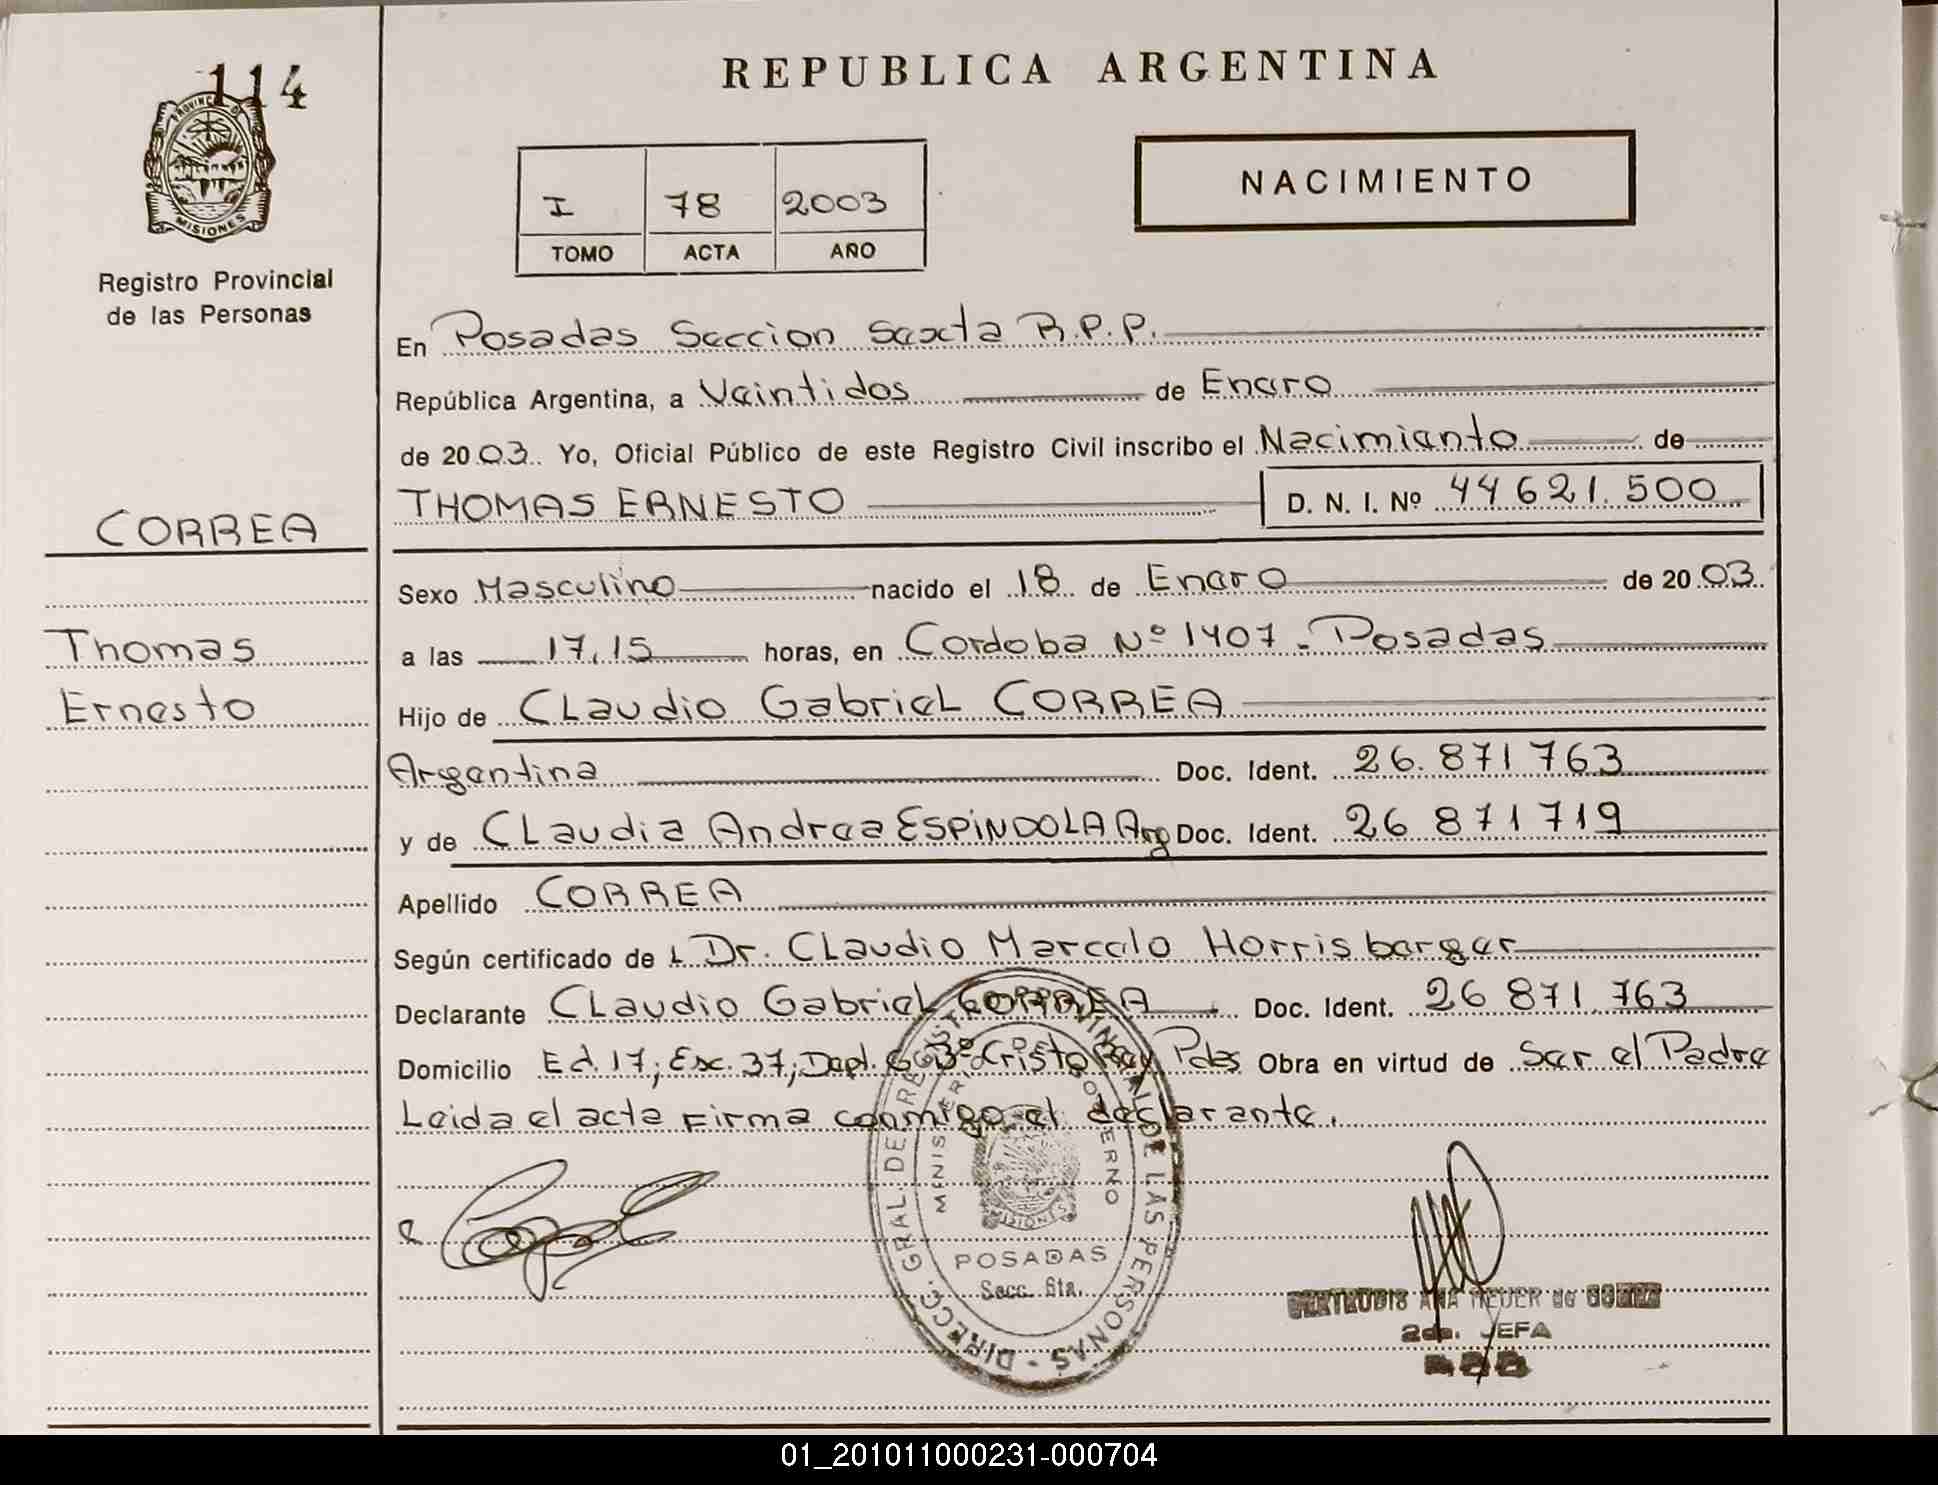 114
PROVINCIA DE
MISIONES
Registro Provincial
de las Personas
CORREA
Thomas
Ernesto
REPUBLICA ARGENTINA
I 78 2003
TOMO ACTA AÑO
NACIMIENTO
En Posadas Seccion Sexta R.P.P.
República Argentina, a Veintidos de Enero
de 2003. Yo, Oficial Público de este Registro Civil inscribo el Nacimiento de
THOMAS ERNESTO D. N. I. Nº 44 621.500
Sexo Masculino nacido el 18 de Enero de 2003
a las 17,15 horas, en Cordoba Nº 1407 - Posadas
Hijo de Claudio Gabriel CORREA
Argentina Doc. Ident. 26.871 763
y de Claudia Andrea ESPINDOLA Arg Doc. Ident. 26 871 719
Apellido CORREA
Según certificado de L Dr. Claudio Marcelo Horrisberger
Declarante Claudio Gabriel CORREA Doc. Ident. 26 871.763
Domicilio Ed. 17; Esc. 37; Dept. G Bº Cristo Rey Pdas Obra en virtud de Ser el Padre
Leida el acta Firma conmigo el declarante.
DIRECC. GRAL. DE REGISTRO PROVINCIAL DE LAS PERSONAS -
MINISTERIO DE GOBIERNO
MISIONES
POSADAS
Secc. 6ta.
GERTRUDIS ANA MEYER de GOMEZ
2da. JEFA
01_201011000231-000704